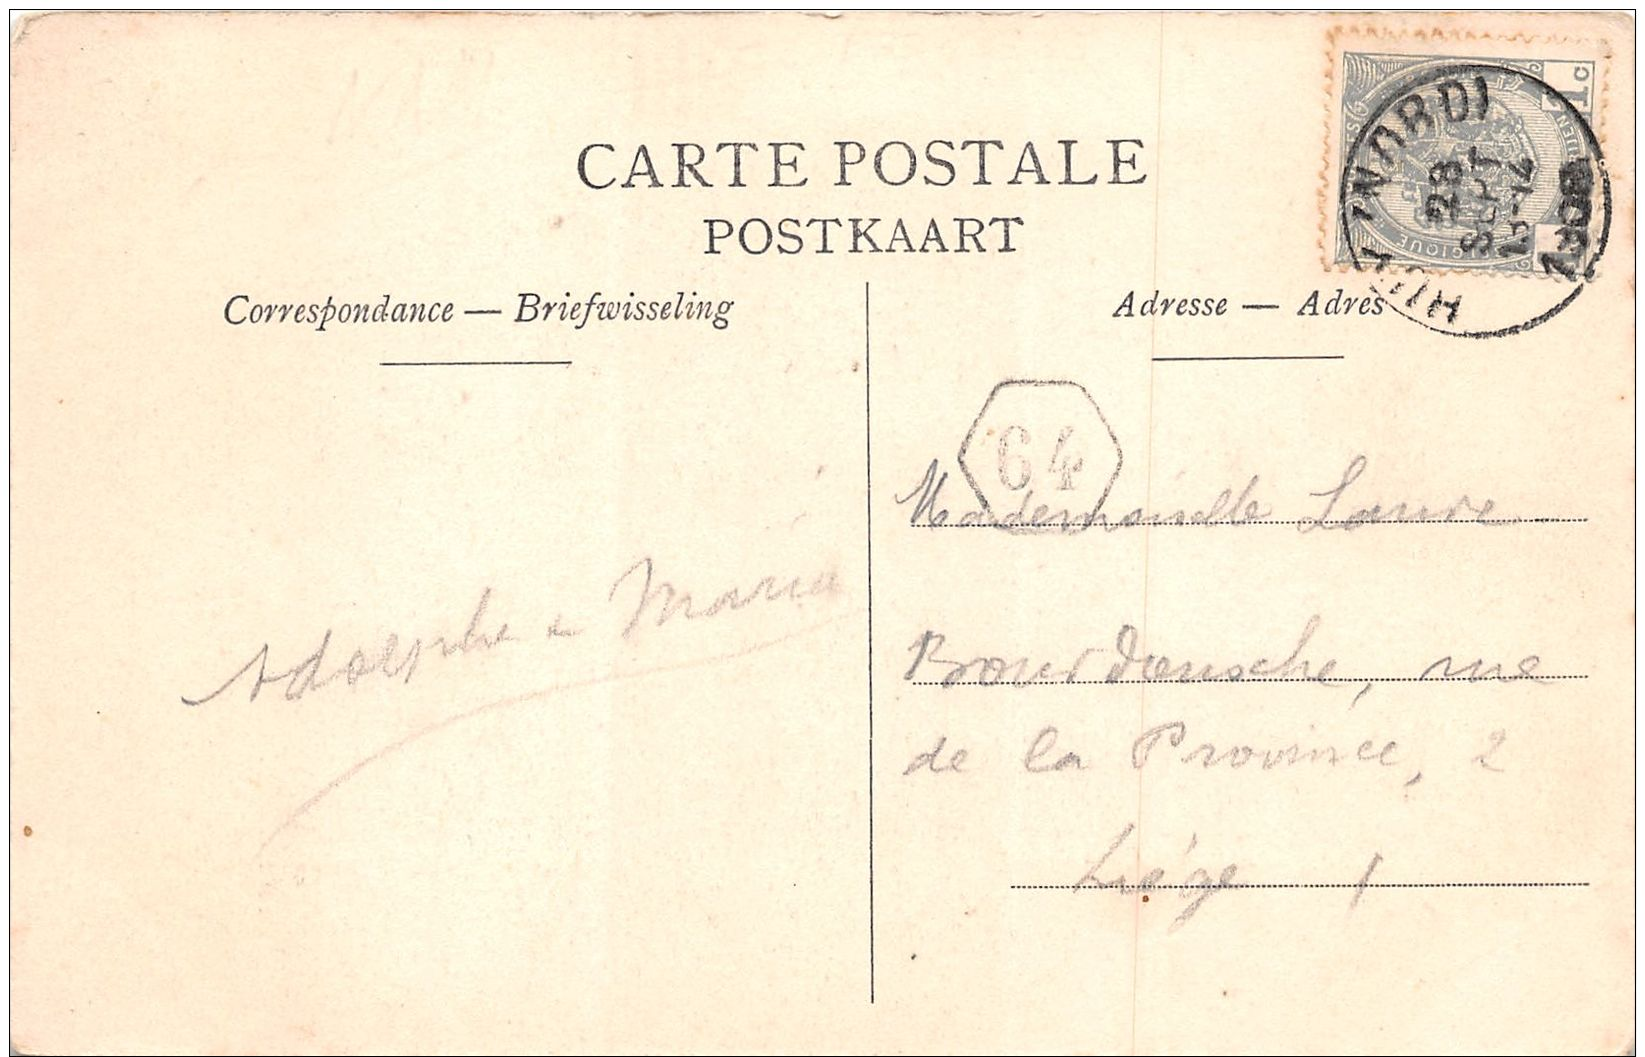 CARTE POSTALE
POSTKAART
Correspondance — Briefwisseling
Adresse — Adres
1c
HUY (NORD)
28
SEPT
13-14
1908
64
Adolphe & Maria
Mademoiselle Laure
Bourdouxhe, rue
de la Province, 2
Liége 1